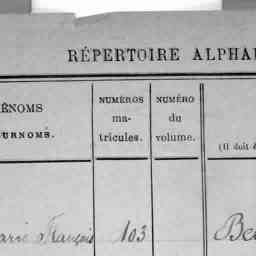 RÉPERTOIRE ALPHA
ÉNOMS
URNOMS.
NUMÉROS
ma-
tricules.
NUMÉRO
du
volume.
(Il doit
arie François
103
Be